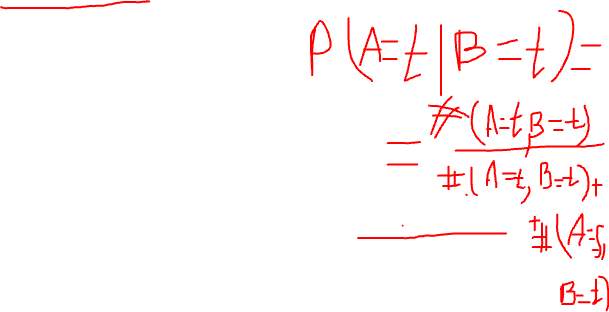 P(A=t|B=t)=
= #(A=t,B=t)
#(A=t, B=t)+
+#(A=f,
B=t)